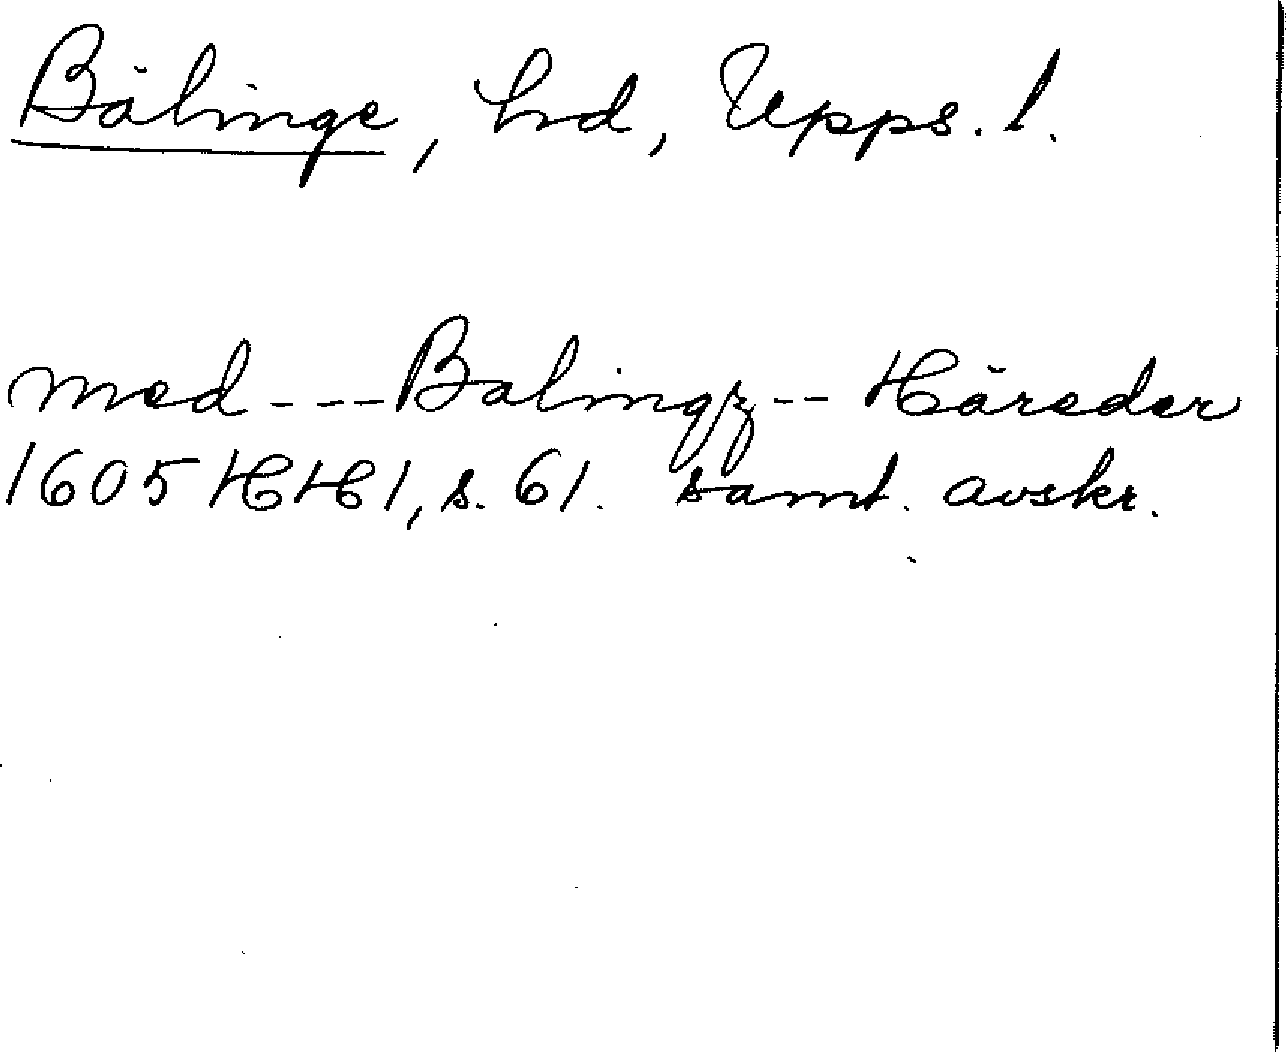 Bälinge, hd, Upps. l.
med --- Balingz -- Häreder
1605 HH 1, s. 61. samt. avskr.